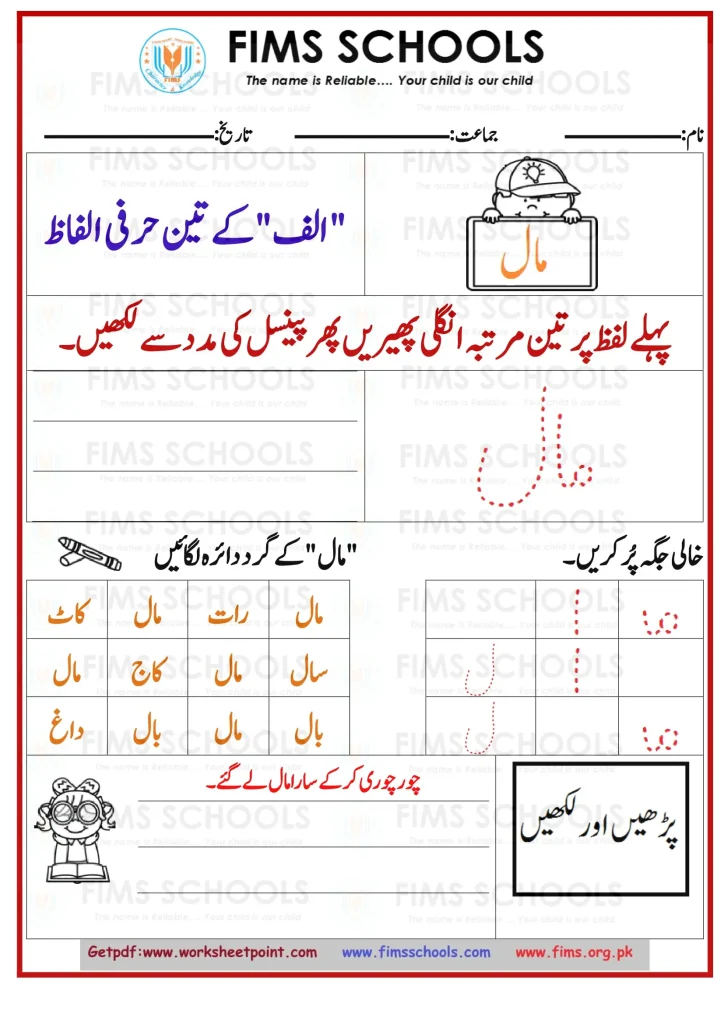 FIMS SCHOOLS
The name is Reliable.... Your child is our child
نام: جماعت: تاریخ:
مال
"الف" کے تین حرفی الفاظ
پہلے لفظ پر تین مرتبہ انگلی پھیریں پھر پینسل کی مدد سے لکھیں۔
مال
خالی جگہ پُر کریں۔
ما ا
ا ل
ما ل
"مال" کے گرد دائرہ لگائیں
مال رات مال کاٹ
سال مال کاج مال
بال مال بال داغ
پڑھیں اور لکھیں
چور چوری کر کے سارا مال لے گئے۔
Getpdf:www.worksheetpoint.com www.fimsschools.com www.fims.org.pk